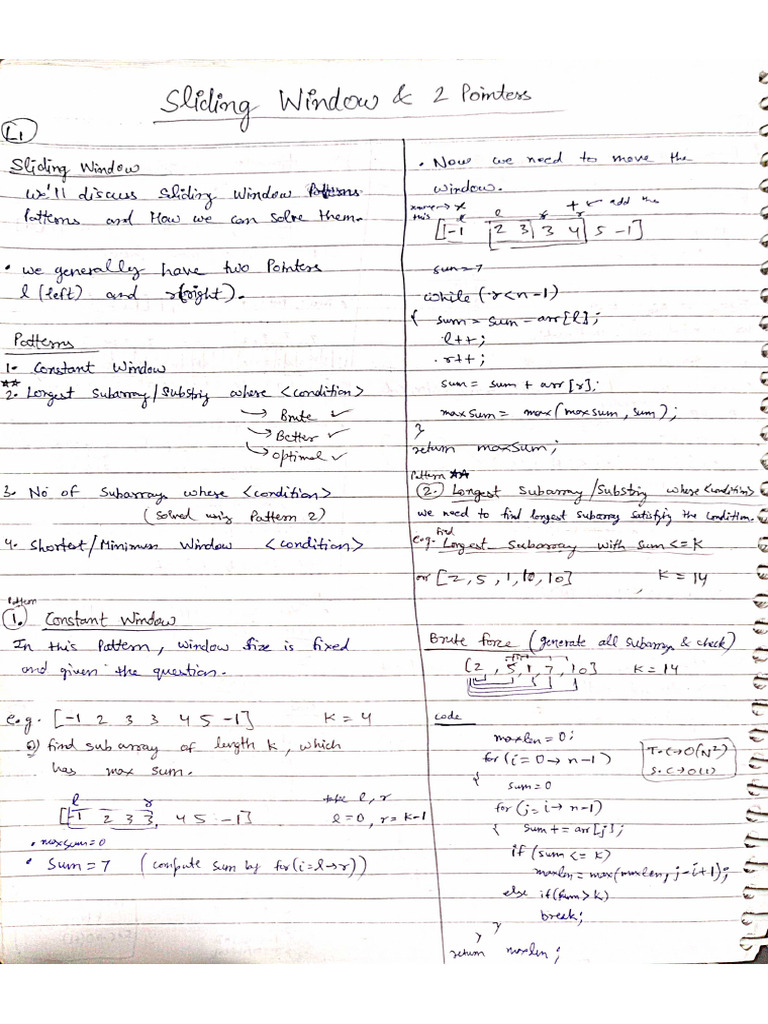 Sliding Window & 2 Pointers
L1
Sliding Window
we'll discuss Sliding Window
Patterns and How we can solve them.
• we generally have two Pointers
l (left) and r(right).
Patterns
1. Constant Window
2. Longest Subarray/Substrig where <condition>
→ Brute ✓
→ Better ✓
→ Optimal ✓
3. No of Subarrays where <condition>
(Solved using Pattern 2)
4. Shortest/Minimum Window <condition>
Pattern
1. Constant Window
In this Pattern, window size is fixed
and given the question.
e.g. [-1 2 3 3 4 5 -1] K = 4
Q) find subarray of length k, which
has max sum.
l r
[-1 2 3 3, 4 5 -1]
take l, r
l=0, r= k-1
• maxsum=0
• Sum = 7 (compute sum by for(i=l→r))
• Now we need to move the
window.
this l l r r + ← add the
[-1 2 3 3 4 5 -1]
sum=7
while (r<n-1)
{ sum = sum - arr[l];
l++;
r++;
sum = sum + arr[r];
maxsum = max(maxsum, sum);
}
return maxsum;
Pattern ★★
2. Longest Subarray/Substrig where <condition>
we need to find longest Subarray satisfying the condition.
e.g. find Longest Subarray with sum <= K
arr [2, 5, 1, 10, 10] K = 14
Brute force (generate all subarrays & check)
[2, 5, 1, 7, 10] K = 14
code
maxlen = 0;
for(i=0→n-1)
{
sum=0
for(j=i→n-1)
{ sum += arr[j];
if (sum <= K)
maxlen = max(maxlen, j-i+1);
else if(sum>k)
break;
}
}
return maxlen;
T.C→O(N²)
S.C→O(1)